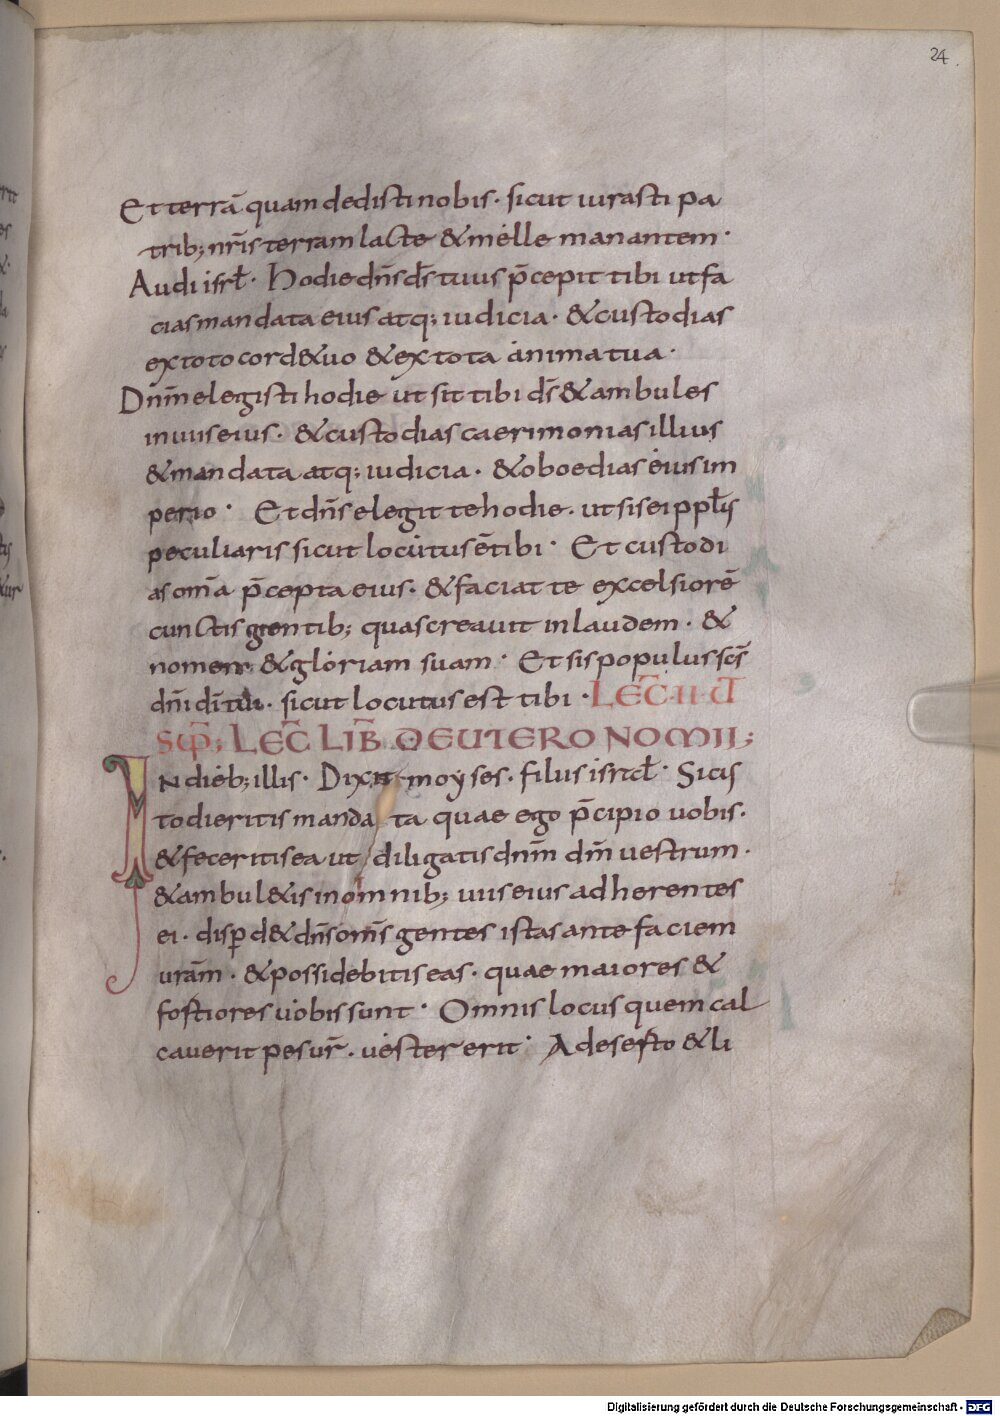 24.
Et terrā quam dedisti nobis· sicut iurasti pa
trib; nr̄is terram lacte & melle manantem·
Audi isrl̄· Hodie dn̄s ds̄ tuus p̄cepit tibi ut fa
cias mandata eius atq; iudicia· & custodias
ex toto cord& uo & ex tota anima tua·
Dnm̄ elegisti hodie ut sit tibi ds̄ & ambules
in uiis eius· & custodias caerimonias illius
& mandata atq; iudicia· & oboedias eius im
perio· Et dn̄s elegit te hodie· ut sis ei ppl̄s
peculiaris sicut locutus ē tibi· Et custodi
as om̄a p̄cepta eius· & faciat te excelsiorē
cunctis gentib; quas creauit in laudem· &
nomen & gloriam suam· Et sis populus scs̄
dn̄i dī tui· sicut locutus est tibi· LEC̄ II UT
SUP̄; LEC̄ LIB̄ DEUTERONOMII;
IN dieb; illis· Dixit moyses· filiis isrl̄· Si cus
todieritis manda ta quae ego p̄cipio uobis·
& feceritis ea ut diligatis dnm̄ dm̄ uestrum·
& ambul&is in omnib; uiis eius adherentes
ei· disꝑd& dn̄s om̄s gentes istas ante faciem
uram̄· & possidebitis eas· quae maiores &
fostiores uobis sunt· Omnis locus quem cal
cauerit pes ur̄· uester erit· A deserto & li
Digitalisierung gefördert durch die Deutsche Forschungsgemeinschaft - DFG